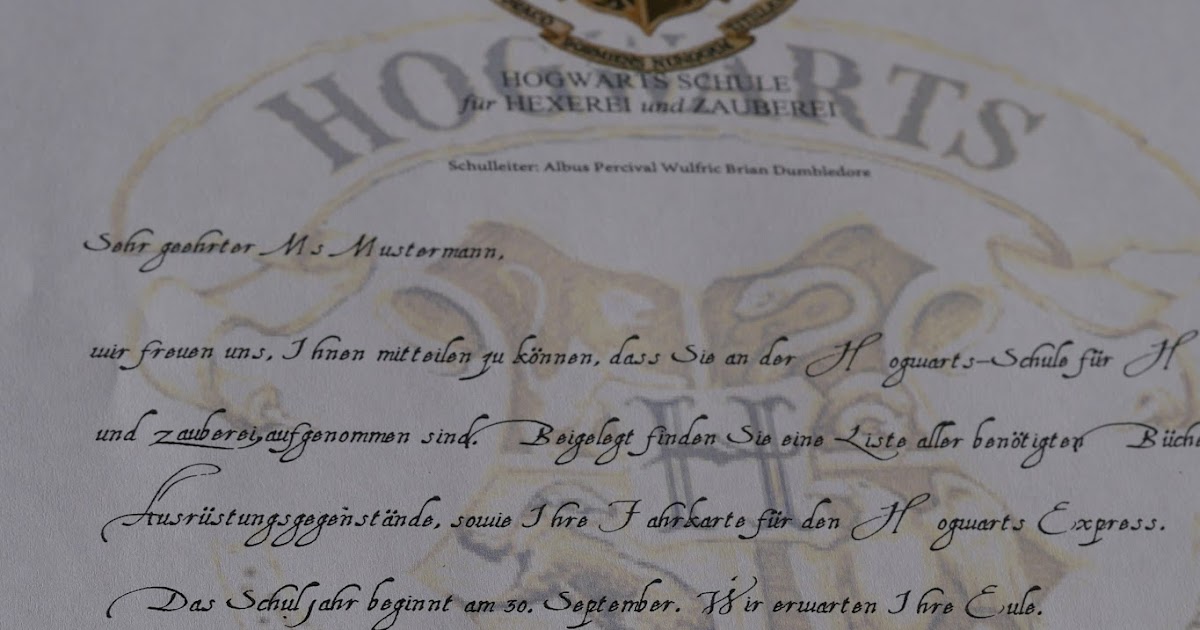 DRACO DORMIENS NUNQUAM TITILLANDUS
HOGWARTS
HOGWARTS SCHULE
für HEXEREI und ZAUBEREI
Schulleiter: Albus Percival Wulfric Brian Dumbledore
Sehr geehrter Ms Mustermann,
wir freuen uns, Ihnen mitteilen zu können, dass Sie an der Hogwarts-Schule für H
und zauberei,aufgenommen sind. Beigelegt finden Sie eine Liste aller benötigten Büche
Ausrüstungsgegenstände, sowie Ihre Fahrkarte für den Hogwarts Express.
Das Schuljahr beginnt am 30. September. Wir erwarten Ihre Eule.
H